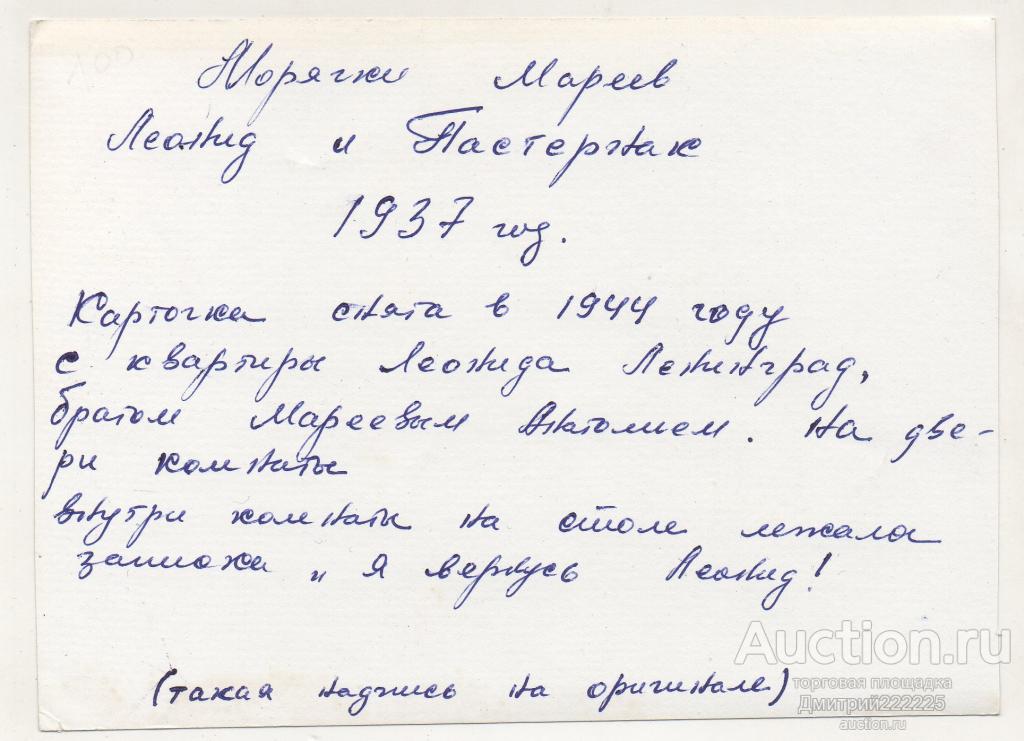 100
Морячки Мареев
Леонид и Пастернак
1937 год.
Карточка снята в 1944 году
с квартиры Леонида Ленинград,
братом Мареевым Антолием. На две-
ри комнаты
внутри комнаты на столе лежала
записка „ Я вернусь Леонид!
(такая надпись на оригинале)
Auction.ru
торговая площадка
Дмитрий222225
auction.ru